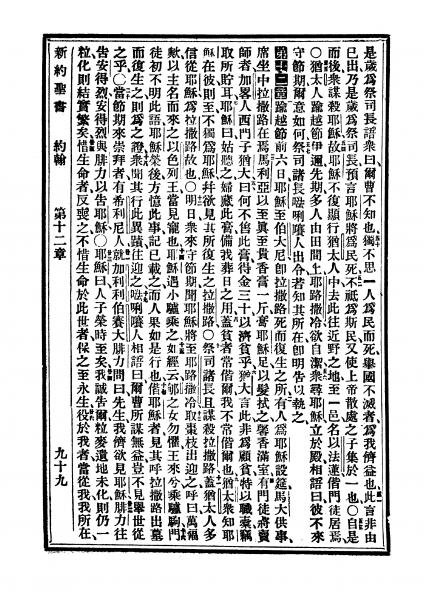 是歲爲祭司長語衆曰爾曹不知也獨不思一人爲民而死舉國不滅者爲我儕益也此言非由
已出乃是歲爲祭司長預言耶穌將爲民死不祗爲斯民又使上帝散處之子集於一也○自是
而後衆謀殺耶穌故耶穌不復顯行猶太人中去此往近野之地至一邑名以法蓮偕門徒居焉
○猶太人踰越節伊邇先期多人由田間上耶路撒冷欲自潔衆尋耶穌立於殿相語曰彼不來
守節期爾意如何祭司諸長𠵽唎㘔人出令若知其所在卽明告以執之
第十二章踰越節前六日耶穌至伯大尼卽拉撒路死而復生之所有人爲耶穌設筵馬大供事
席坐中拉撒路在焉馬利亞以至眞至貴香膏一斤膏耶穌足以髮拭之馨香滿室有門徒將賣
師者加畧人西門子猶大曰何不售此膏得金三十以濟貧乎猶大言此非爲顧貧特以職橐竊
取所貯耳耶穌曰姑聽之婦藏此膏備我葬日之用蓋貧者常偕爾我不常偕爾也猶太衆知耶
穌在彼則至不獨爲耶穌幷欲見其所復生之拉撒路○祭司諸長且謀殺拉撒路蓋猶太人多
信從耶穌爲拉撒路故也○明日衆來守節期聞耶穌將至耶路撒冷取棗枝出迎之呼曰萬福
歟以主名而來之以色列王當見寵也耶穌遇小驢乘之如經云郇之女勿懼王來兮乘驢駒門
徒初不明此語耶穌榮後方憶此事記已載之而人果如是行也偕耶穌者見其呼拉撒路出墓
而復生之則爲之證衆聞其行此異蹟往迎之𠵽唎㘔人相語曰爾曹所謀無益豈不見舉世從
之乎○當節期來崇拜者有希利尼人就加利利伯賽大腓力問曰先生我儕欲見耶穌腓力往
告安得烈安得烈與腓力以告耶穌○耶穌曰人子榮時至矣我誠告爾粒麥遺地未化則仍一
粒化則結實繁矣惜生命者反喪之不惜生命於此世者保之至永生役於我者當從我我所在
新約聖書 約翰 第十二章 九十九